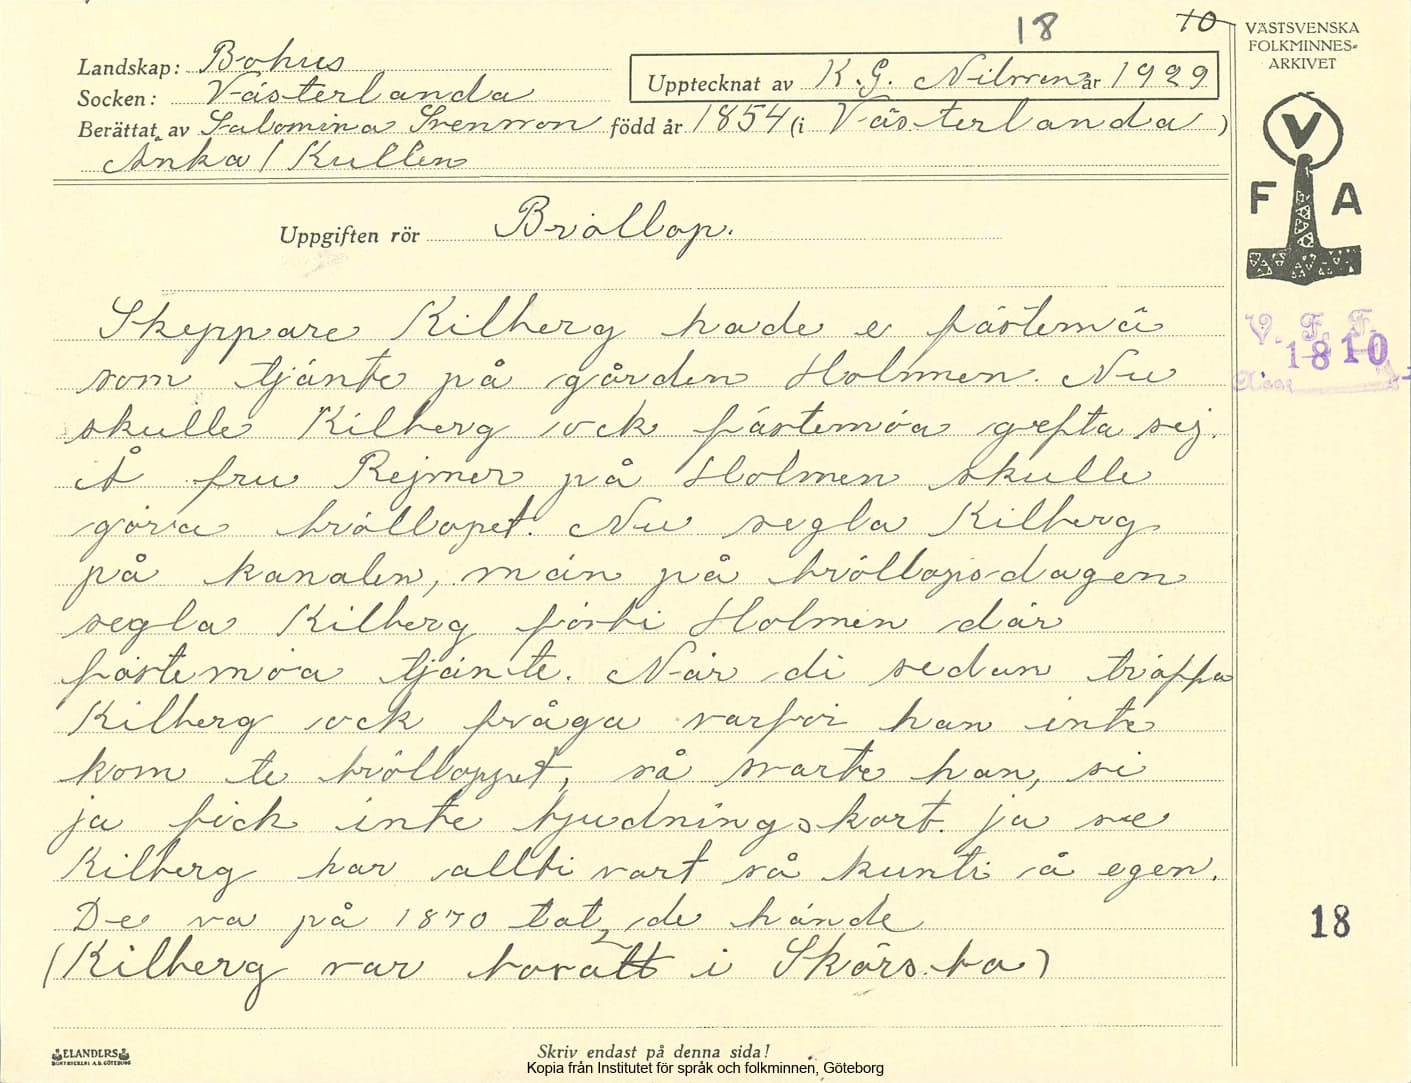 18 10
VÄSTSVENSKA
FOLKMINNES-
ARKIVET
Landskap: Bohus
Upptecknat av K. G. Nilsson år 1929
Socken: Västerlanda
Berättat av Salomina Svensson född år 1854 (i Västerlanda)
Änka / Kullen
V
F A
Uppgiften rör Bröllop.
Skeppare Kilberg hade e fästemö
som tjänte på gården Holmen. Nu
skulle Kilberg ock fästemöa gefta sej.
Å fru Rejmer på Holmen skulle
göra bröllopet. Nu segla Kilberg
på kanalen, män på bröllopsdagen
segla Kilberg förbi Holmen där
fästemöa tjänte. När di sedan träffa
Kilberg ock fråga varför han inte
kom te brölloppet, så svarte han, si
ja fick inte bjudningskort. ja sve
Kilberg har allti vart så kunti å egen.
De va på 1870 talet de hände
(Kilberg var boratt i Skörsbo)
V. F. F.
1810
18
ELANDERS
BOKTRYCKERI A.B. GÖTEBORG
Skriv endast på denna sida!
Kopia från Institutet för språk och folkminnen, Göteborg